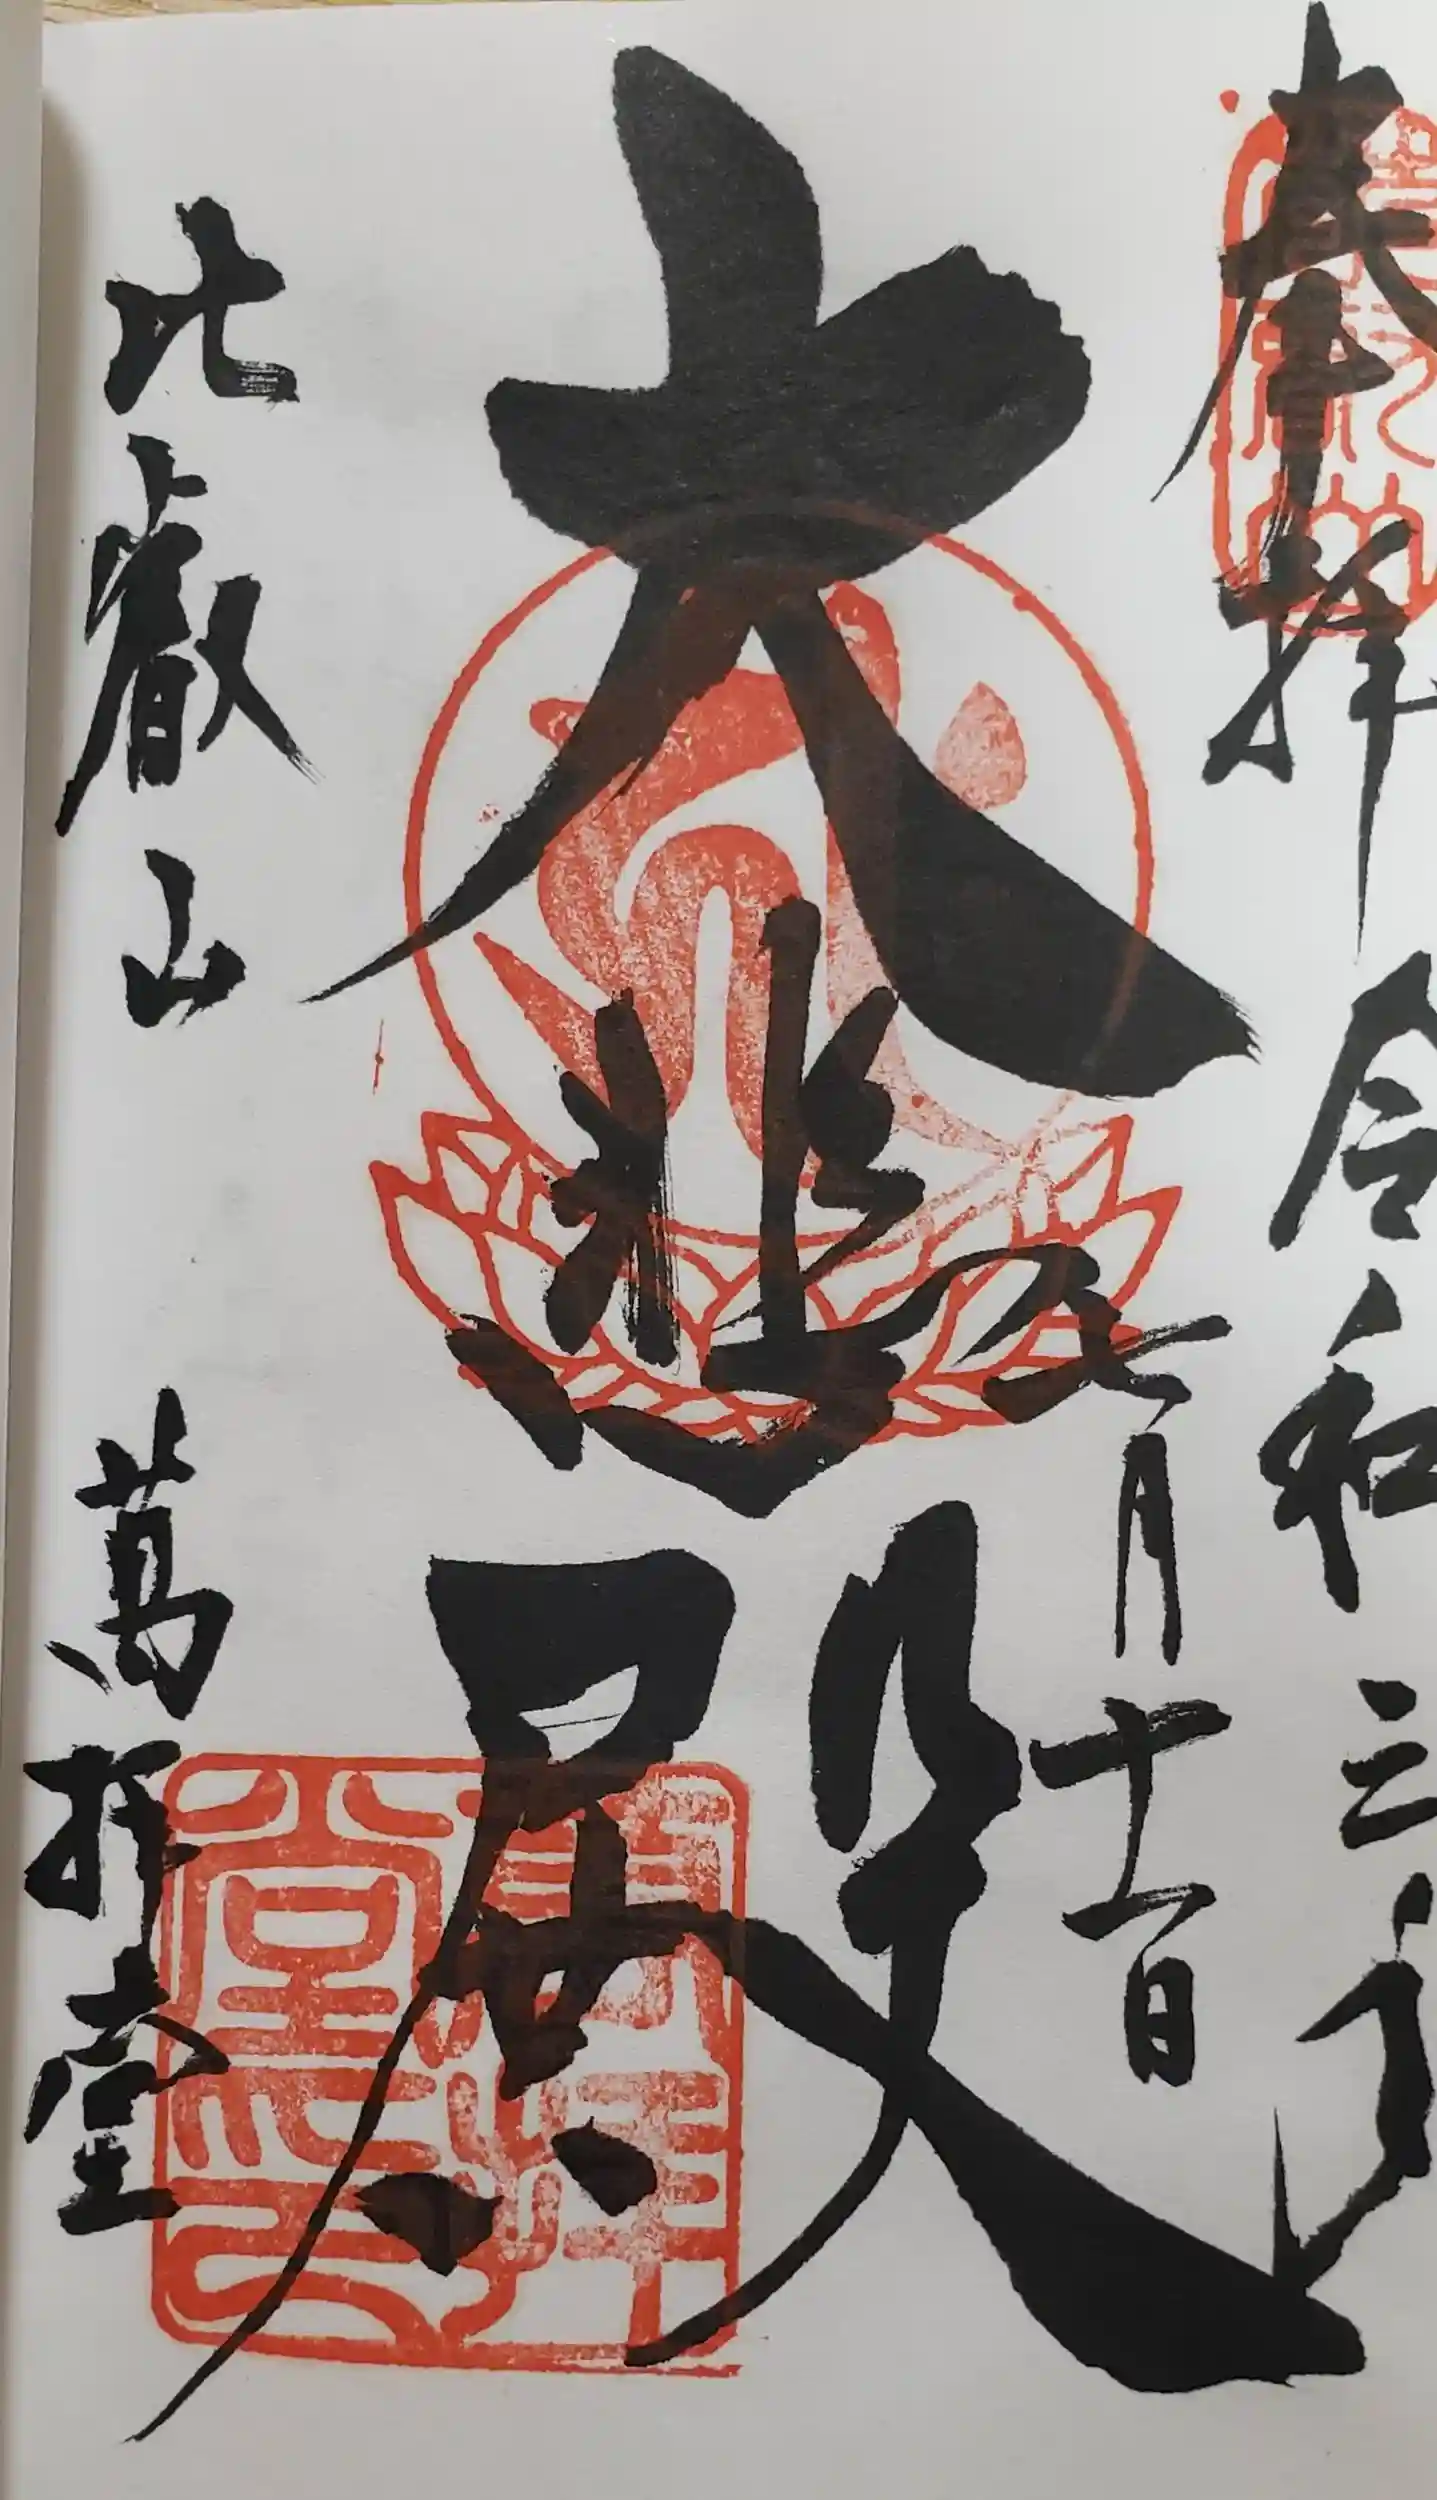 奉拝 令和三年
七月十一日
大悲殿
比叡山 萬拝堂